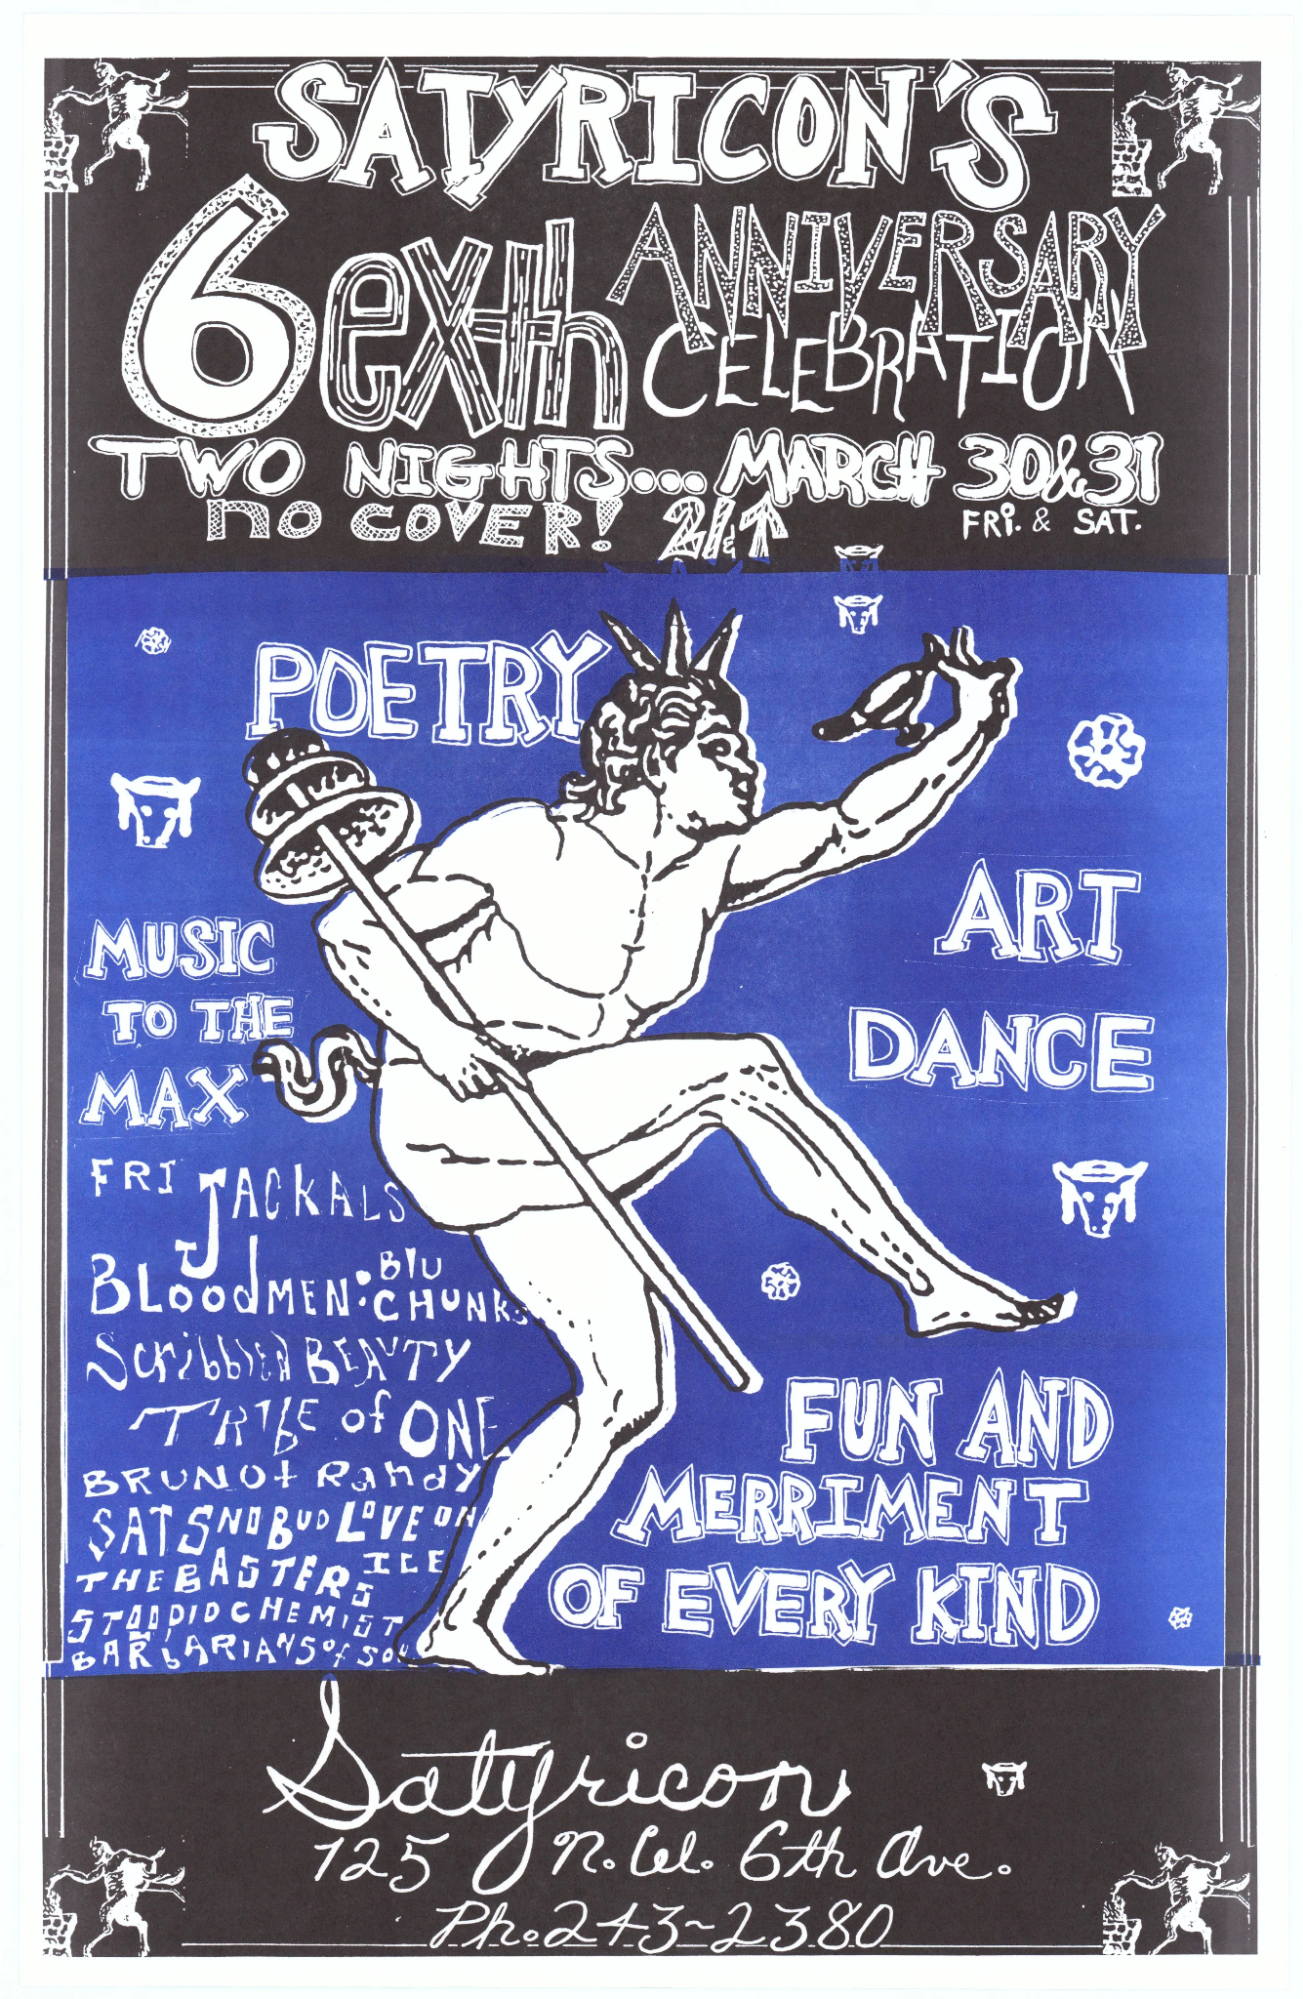 SATYRICON'S
6exth ANNIVERSARY
CELEBRATION
TWO NIGHTS... MARCH 30&31
NO COVER! 21&↑ FRi. & SAT.
POETRY
ART
MUSIC
TO THE
MAX
DANCE
FRI JACKALS
BLoodMEN: BlU CHUNKS
Scribbled BEAUTY
TRIBE of ONE
BRUNOt Randy
SAT SNOBUD LOVE ON ICE
THE BASTERS
STOOPID CHEMIST
BARbARIANS of SOU
FUN AND
MERRIMENT
OF EVERY KIND
Satyricon
125 N.W. 6th Ave.
Ph. 243~2380